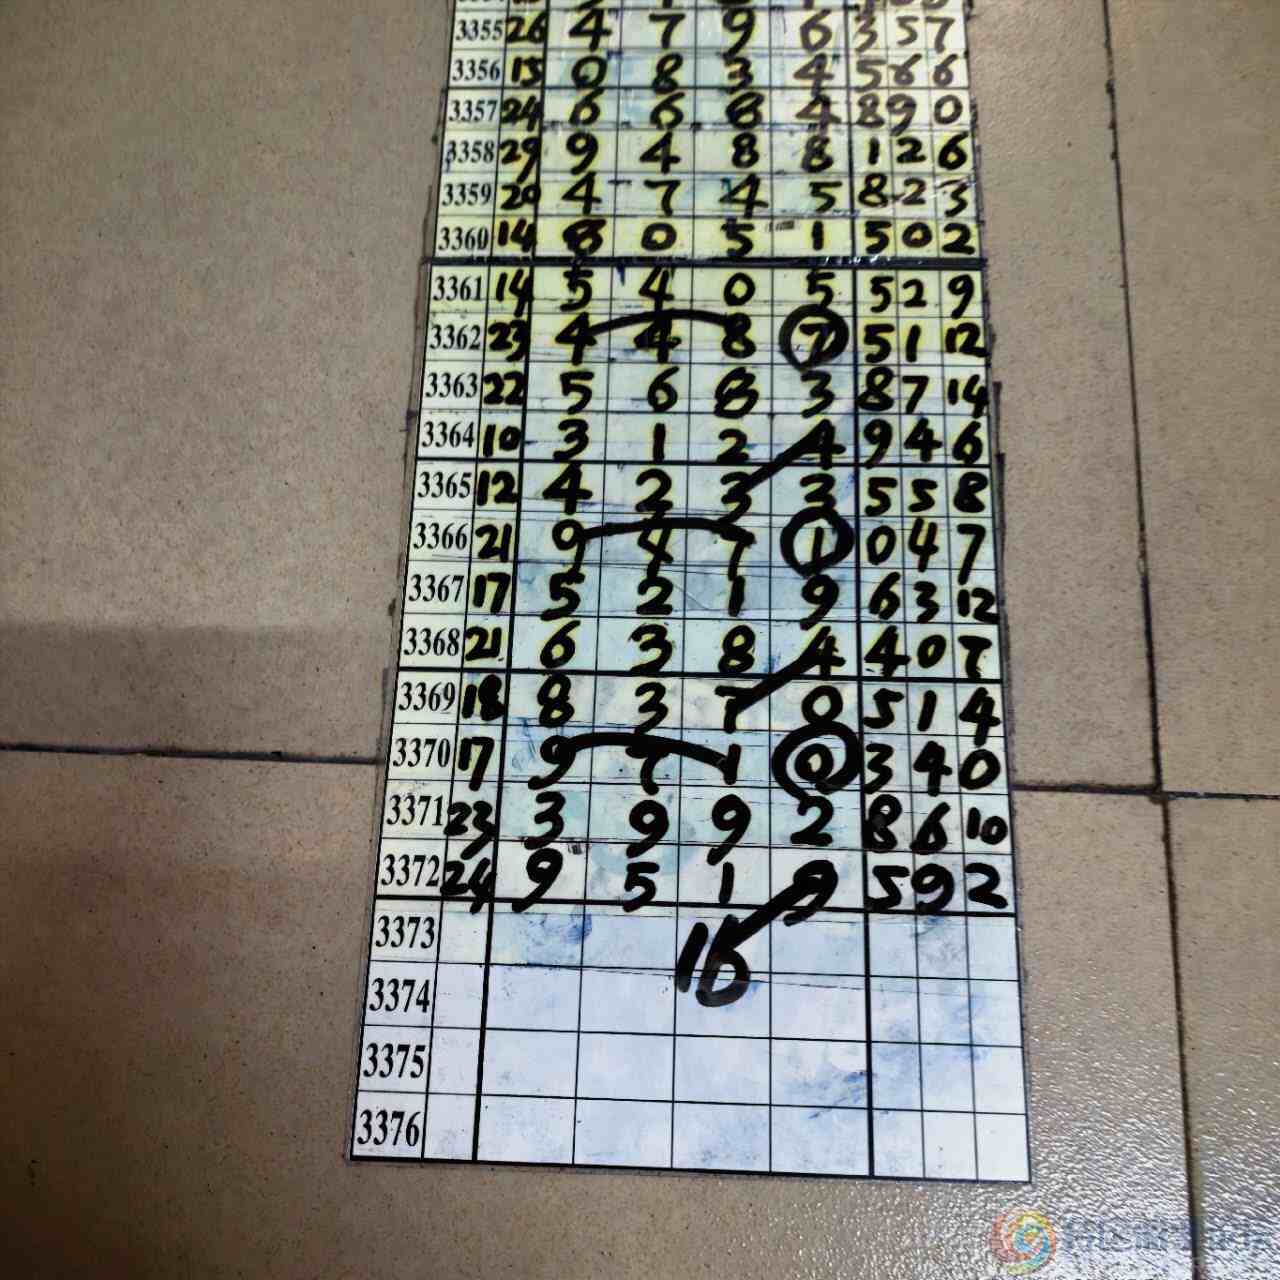 3355 26 4 7 9 6 3 5 7
3356 15 0 8 3 4 5 6 6
3357 24 6 6 8 4 8 9 0
3358 29 9 4 8 8 1 2 6
3359 20 4 7 4 5 8 2 3
3360 14 8 0 5 1 5 0 2
3361 14 5 4 0 5 5 2 9
3362 23 4 4 8 7 5 1 12
3363 22 5 6 8 3 8 7 14
3364 10 3 1 2 4 9 4 6
3365 12 4 2 3 3 5 5 8
3366 21 9 4 7 1 0 4 7
3367 17 5 2 1 9 6 3 12
3368 21 6 3 8 4 4 0 7
3369 18 8 3 7 0 5 1 4
3370 17 9 7 1 0 3 4 0
3371 23 3 9 9 2 8 6 10
3372 24 9 5 1 9 5 9 2
3373 16
3374
3375
3376